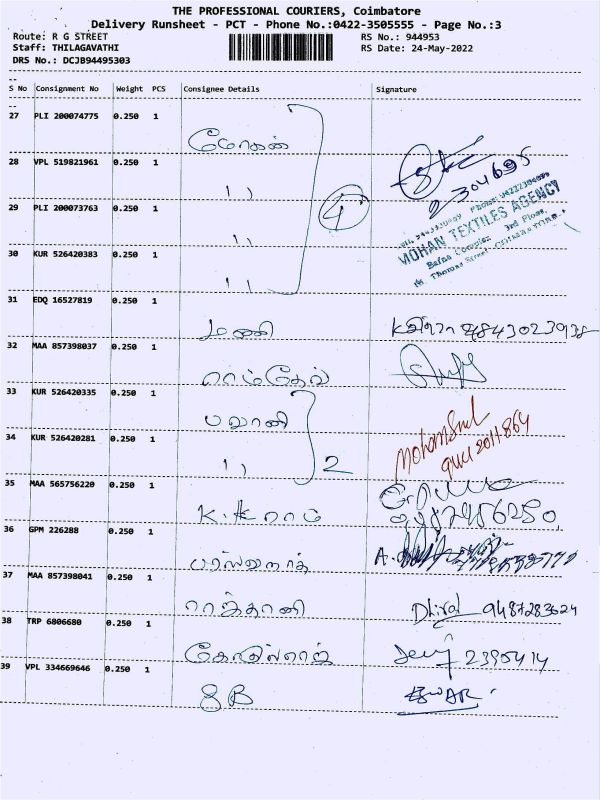 THE PROFESSIONAL COURIERS, Coimbatore
Delivery Runsheet - PCT - Phone No.:0422-3505555 - Page No.:3
Route: R G STREET RS No.: 944953
Staff: THILAGAVATHI RS Date: 24-May-2022
DRS No.: DCJB94495303
S No Consignment No Weight PCS Consignee Details Signature
27 PLI 200074775 0.250 1
மோகன்
28 VPL 519821961 0.250 1
11
2304695
29 PLI 200073763 0.250 1 4
MOHAN TEXTILES AGENCY
11
Bafna Complex 3rd Floor,
Thomas Street
30 KUR 526420383 0.250 1
11
31 EDQ 16527819 0.250 1
மணி
32 MAA 857398037 0.250 1
ராம்தேவ்
33 KUR 526420335 0.250 1
பவானி
34 KUR 526420281 0.250 1
11 2
35 MAA 565756220 0.250 1
K.K ராம்
36 GPM 226288 0.250 1
A.
37 MAA 857398041 0.250 1
Dhiral 9487283624
38 TRP 6806680 0.250 1
2395414
39 VPL 334669646 0.250 1
SB